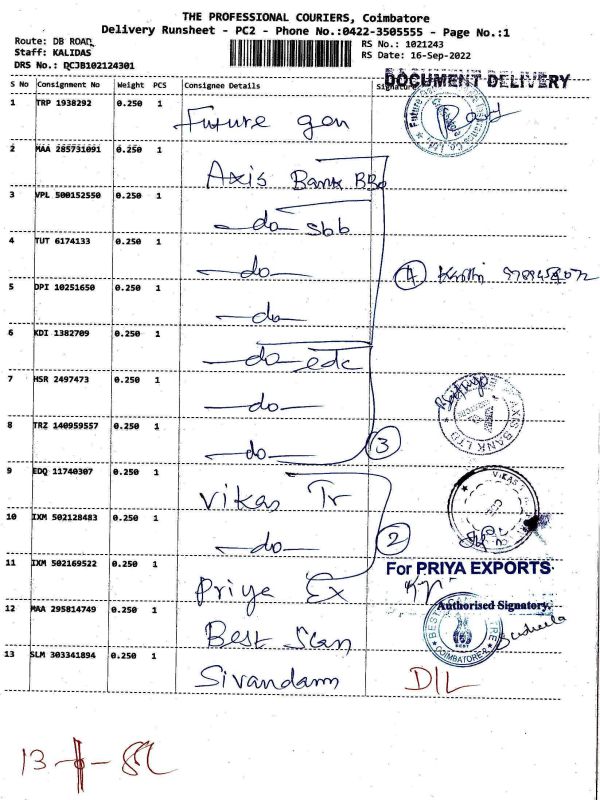 THE PROFESSIONAL COURIERS, Coimbatore
Delivery Runsheet - PC2 - Phone No.:0422-3505555 - Page No.:1
Route: DB ROAD
Staff: KALIDAS
DRS No.: QCJB102124301
RS No.: 1021243
RS Date: 16-Sep-2022
DOCUMENT DELIVERY
S No Consignment No Weight PCS Consignee Details Signature
1 TRP 1938292 0.250 1 Future gen
2 MAA 285731091 0.250 1 Axis Bank BBo
3 VPL 500152550 0.250 1 -do- sbb
4 TUT 6174133 0.250 1 -do- 4
5 DPI 10251650 0.250 1 -do-
6 KDI 1382709 0.250 1 -do- edc
7 HSR 2497473 0.250 1 -do-
8 TRZ 140959557 0.250 1 -do- 3
AXIS BANK LTD
9 EDQ 11740307 0.250 1 Vikas Tr
10 IXM 502128483 0.250 1 -do- 2
For PRIYA EXPORTS
11 IXM 502169522 0.250 1 Priya Ex
Authorised Signatory.
12 MAA 295814749 0.250 1 Best Scan
COIMBATORE-2
13 SLM 303341894 0.250 1 Sivandam
D/L